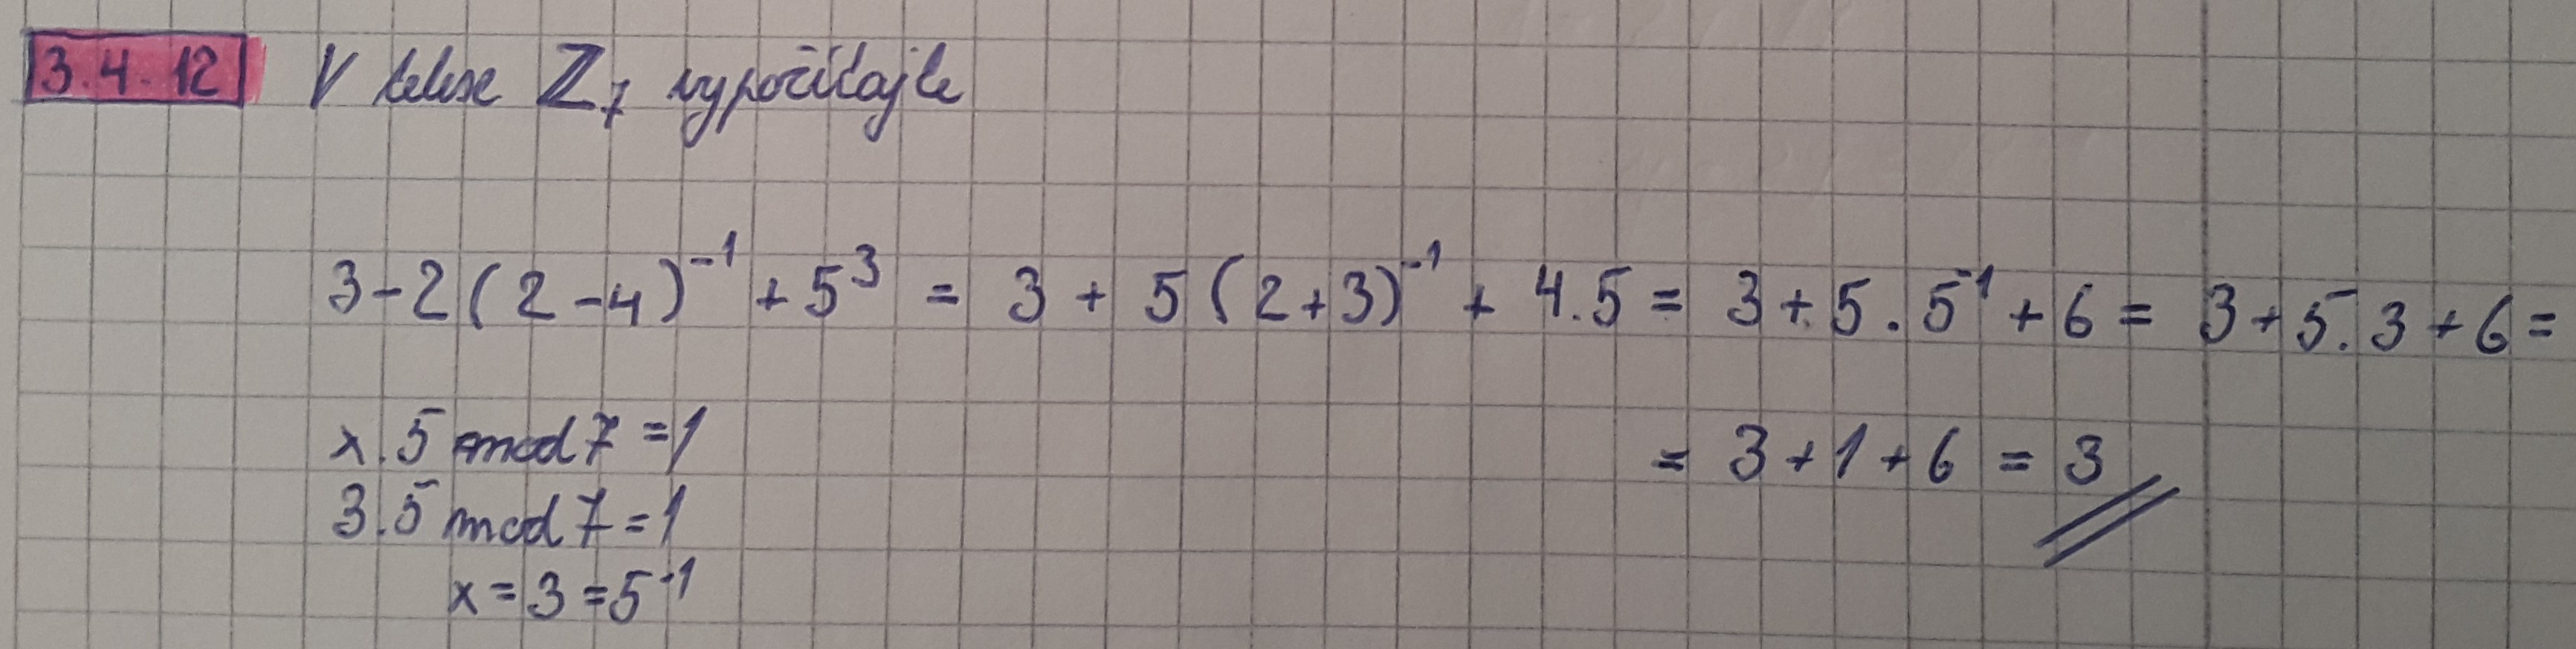 3.4.12 V telese ℤ₇ vypočítajte
3-2(2-4)⁻¹+5³ = 3 + 5(2+3)⁻¹ + 4.5 = 3+5.5⁻¹+6 = 3+5.3+6=
x.5 mod 7 =1
= 3+1+6 = 3
3.5 mod 7=1
x=3=5⁻¹